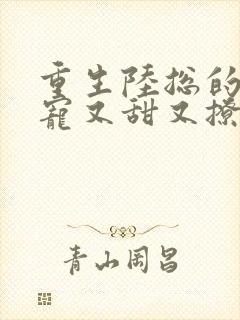 重生陸総的
寵又甜又撩
青山岡昌